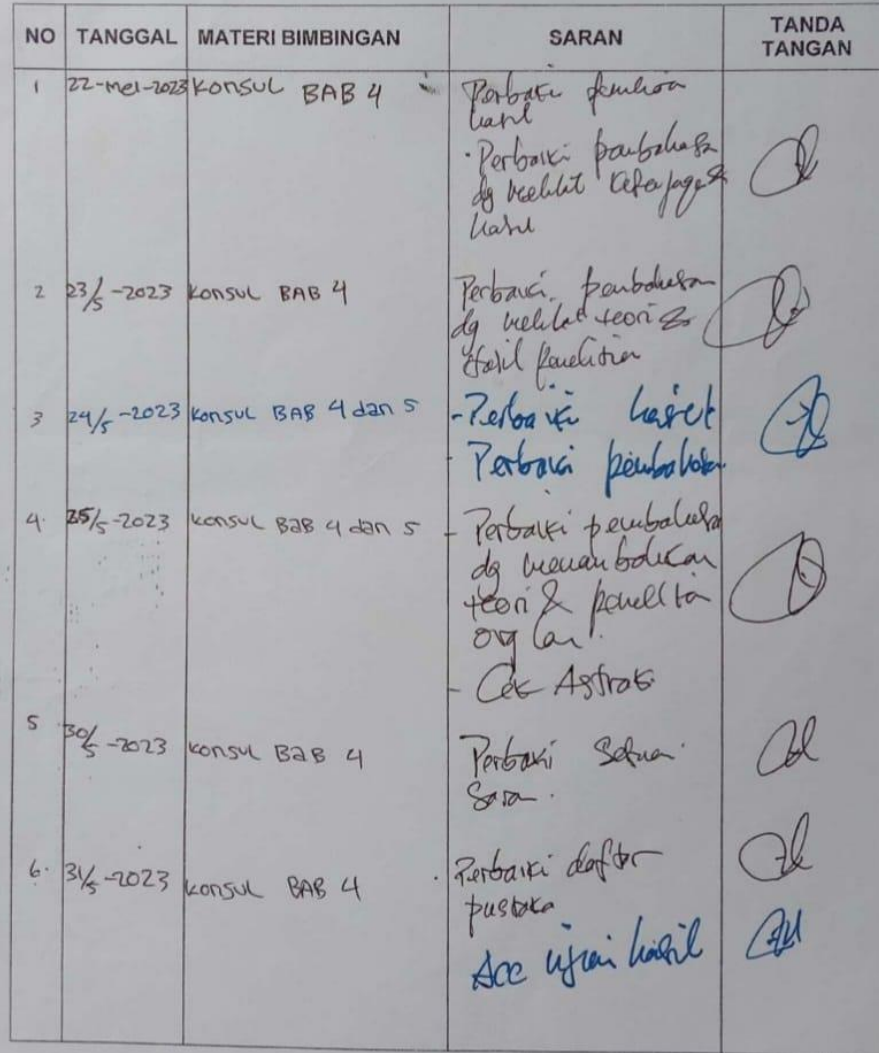 NO TANGGAL MATERI BIMBINGAN SARAN TANDA TANGAN
1 22-Mei-2023 Konsul BAB 4 Perbaiki
hasil
· Perbaiki pembahasa
dg melihat
hasil
2 23/5-2023 Konsul BAB 4 Perbaiki pembahasan
dg melihat teori &
Hasil penelitian
3 24/5-2023 Konsul BAB 4 dan 5 - Perbaiki
- Perbaiki pembahasa
4. 25/5-2023 Konsul BaB 4 dan 5 - Perbaiki pembahasa
dg menambahkan
teori & penelitia
org lain.
- Cek Astrak
5 30/5-2023 Konsul BaB 4 Perbaiki Sesuai
Saran.
6. 31/5-2023 Konsul BAB 4 · Perbaiki daftar
pustaka
Acc ujian hasil